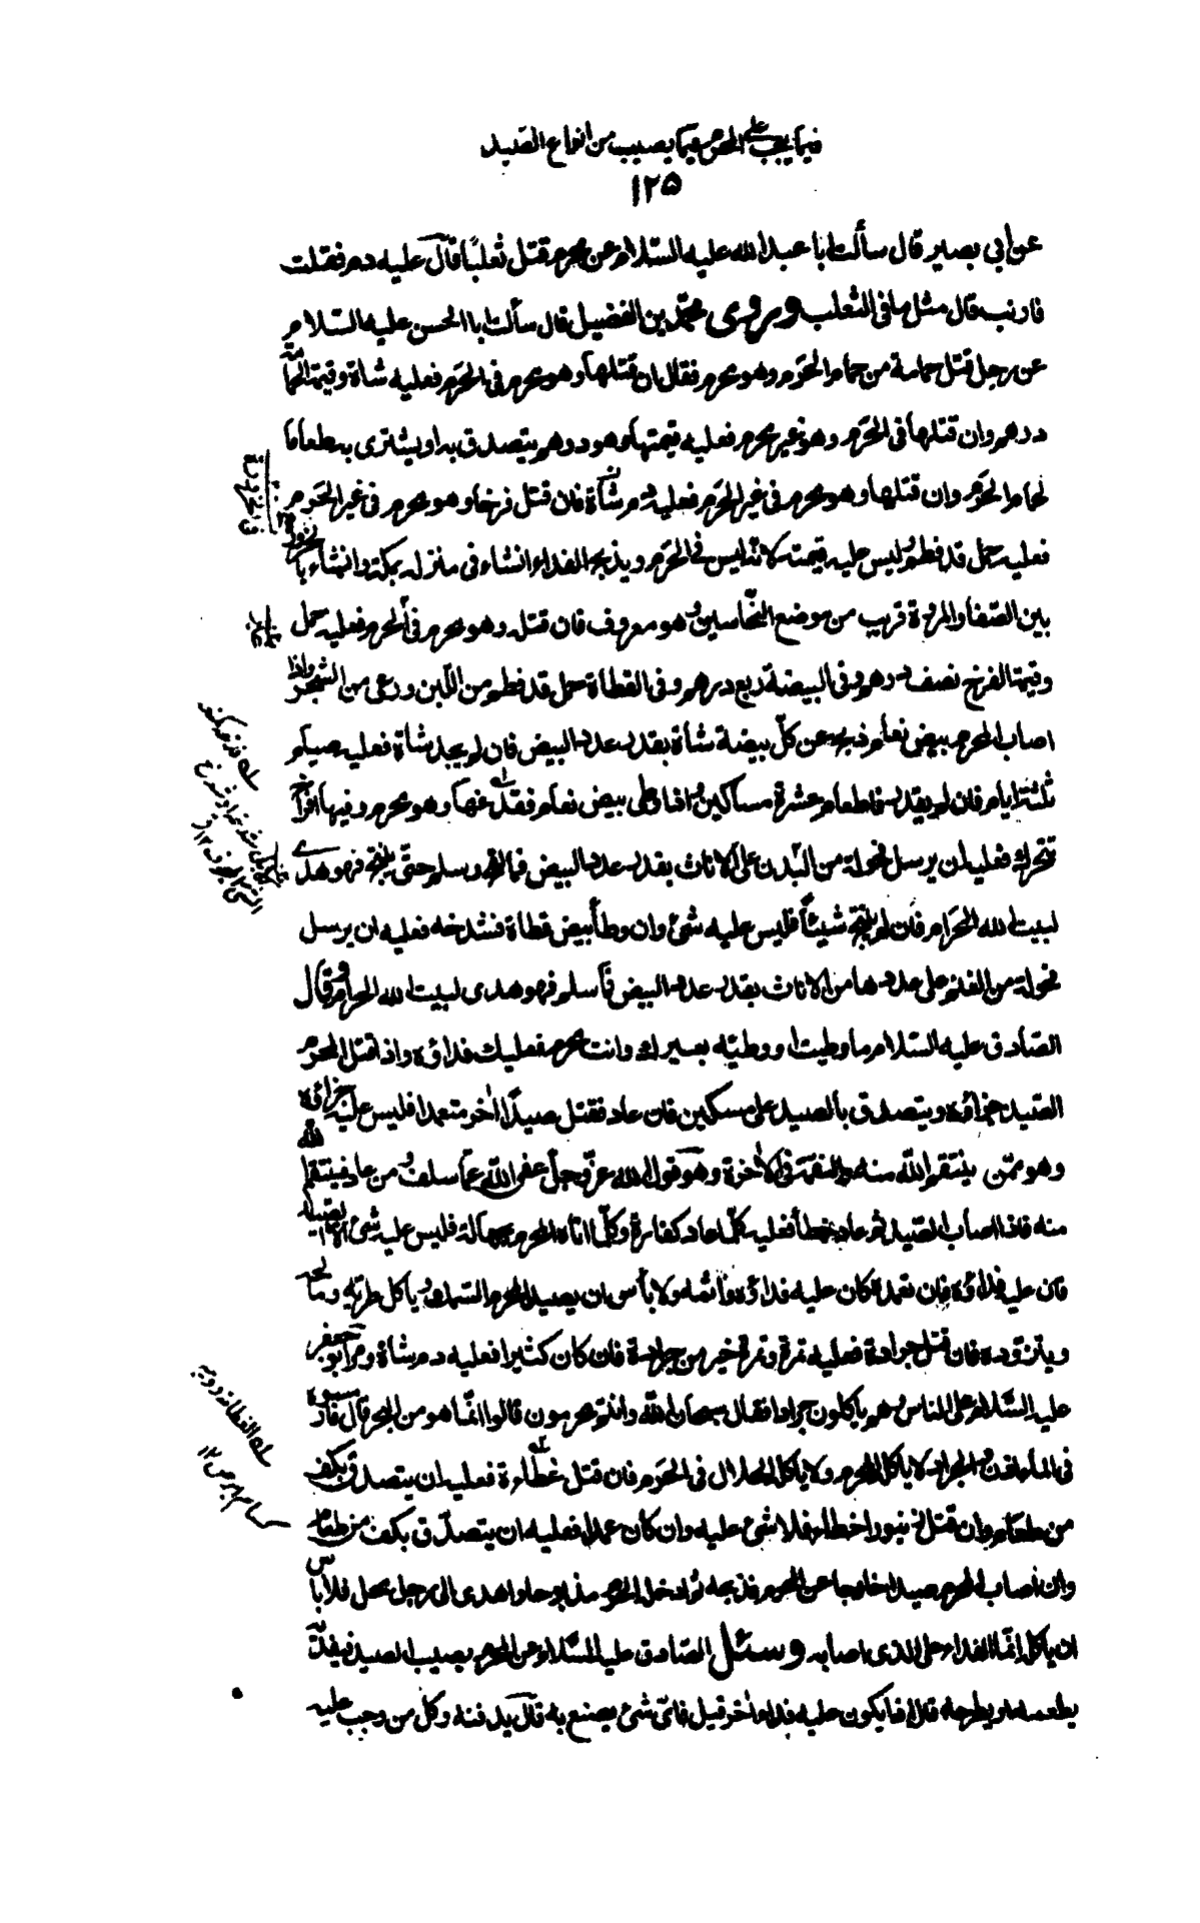 فيما يجب على المحرم فيما يصيب من انواع الصّيد
١٢٥
عن ابي بصير قال سألت ابا عبد الله عليه السّلام عن محرم قتل ثعلبًا قال عليه دم فقلت
فارنب قال مثل ما فى الثعلب وروى محمّد بن الفضيل قال سألت ابا الحسن عليه السّلام
عن رجل قتل حمامة من حمام الحرم وهو محرم فقال ان قتلها وهو محرم فى الحرم فعليه شاة وقيمة الحمامة
درهم وان قتلها فى الحرم وهو غير محرم فعليه قيمتها وهو درهم يتصدق به او يشترى به طعاما
لحمام الحرم وان قتلها وهو محرم فى غير الحرم فعليه دم شاة فان قتل فرخا وهو محرم فى غير الحرم
فعليه حمل قد فطم وليس عليه قيمته لانه ليس فى الحرم ويذبح الفداء ان شاء فى منزله بمكة وان شاء بالحزورة
بين الصّفا والمروة قريب من موضع النخّاسين وهو معروف فان قتله وهو محرم فى الحرم فعليه حمل
وقيمة الفرخ نصف درهم وفى البيضة ربع درهم وفى القطاة حمل قد فطم من اللبن ورعى من الشجر واذا
اصاب المحرم بيض نعام ذبح عن كلّ بيضة شاة بقدر عدد البيض فان لم يجد شاة فعليه صيام
ثلثة ايام فان لم يقدر فاطعام عشرة مساكين واذا وطى بيض نعام ففدغها وهو محرم وفيها افراخ
تتحرك فعليه ان يرسل فحولة من البُدن على الاناث بقدر عدد البيض فما لقح وسلم حتّى ينتج فهو هدى
لبيت الله الحرام فان لم ينتج شيئًا فليس عليه شئ وان وطأ بيض قطاة فشدخه فعليه ان يرسل
فحولة من الغنم على عددها من الاناث بقدر عدد البيض فما سلم فهو هدى لبيت الله الحرام وقال
الصّادق عليه السّلام ما وطيت او وطيه بعيرك وانت محرم فعليك فداؤه واذا قتل المحرم
الصّيد جزاؤه ويتصدق بالصيد على مسكين فان عاد فقتل صيدًا اٰخر متعمدا فليس عليه جزاؤه
وهو ممّن ينتقم الله منه والنقمة فى الاٰخرة وهو قول الله عزّ وجلّ عفى الله عمّا سلف ومن عاد فينتقم الله
منه فاذا اصاب الصّيد ثم عاد خطأ فعليه كلّما عاد كفارة وكلّ ما اتاه المحرم بجهالة فليس عليه شئ الا الصيد
فان عليه فداؤه فان تعمده كان عليه فداؤه واثمه ولا بأس ان يصيد المحرم السّمك وياكل طريّه ومالحه
ويتزوده فان قتل جرادة فعليه تمرة وتمرة خير من جرادة فان كان كثيرا فعليه دم شاة ومرّ ابو جعفر
عليه السّلام على الناس وهم ياكلون جرادا فقال سبحان الله وانتم محرمون قالوا انّما هو من البحر قال فارمسوه
فى الماء اذن والجراد لا ياكله المحرم ولا ياكله الحلال فى الحرم فان قتل عظاءة فعليه ان يتصدق بكف
من طعام وان قتل زنبورا خطاء فلا شئ عليه وان كان عمدا فعليه ان يتصدّق بكف من طعام
وان اصاب المحرم صيدا خارجا عن الحرم فذبحه ثم ادخل الحرم مذبوحا واهدى الى رجل محل فلا باس
ان ياكله انّما الفداء على الذى اصابه وسئل الصّادق عليه السّلام عن المحرم يصيب الصيد فيفديه
يطعمه او يطرحه قال اذا يكون عليه فداء اٰخر قيل فاىّ شئ يصنع به قال يدفنه وكل من وجب عليه